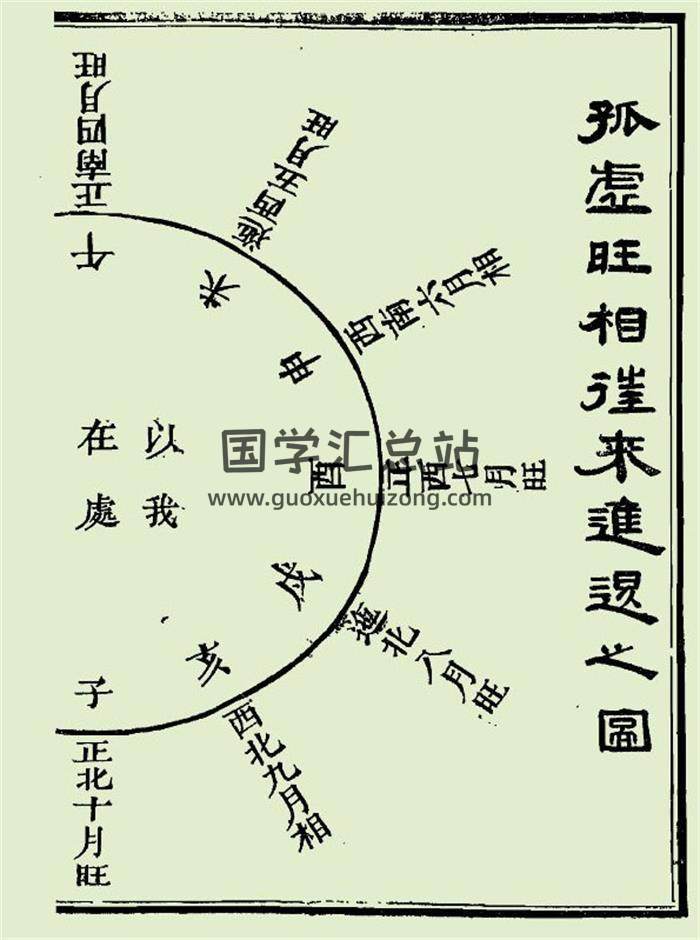 孤虛旺相往來進退之圖
正南四月旺
迤西五月旺
西南六月相
正西七月旺
迤北八月旺
西北九月相
正北十月旺
午
未
申
酉
戌
亥
子
以我
在處
国学汇总站
www.guoxuehuizong.com